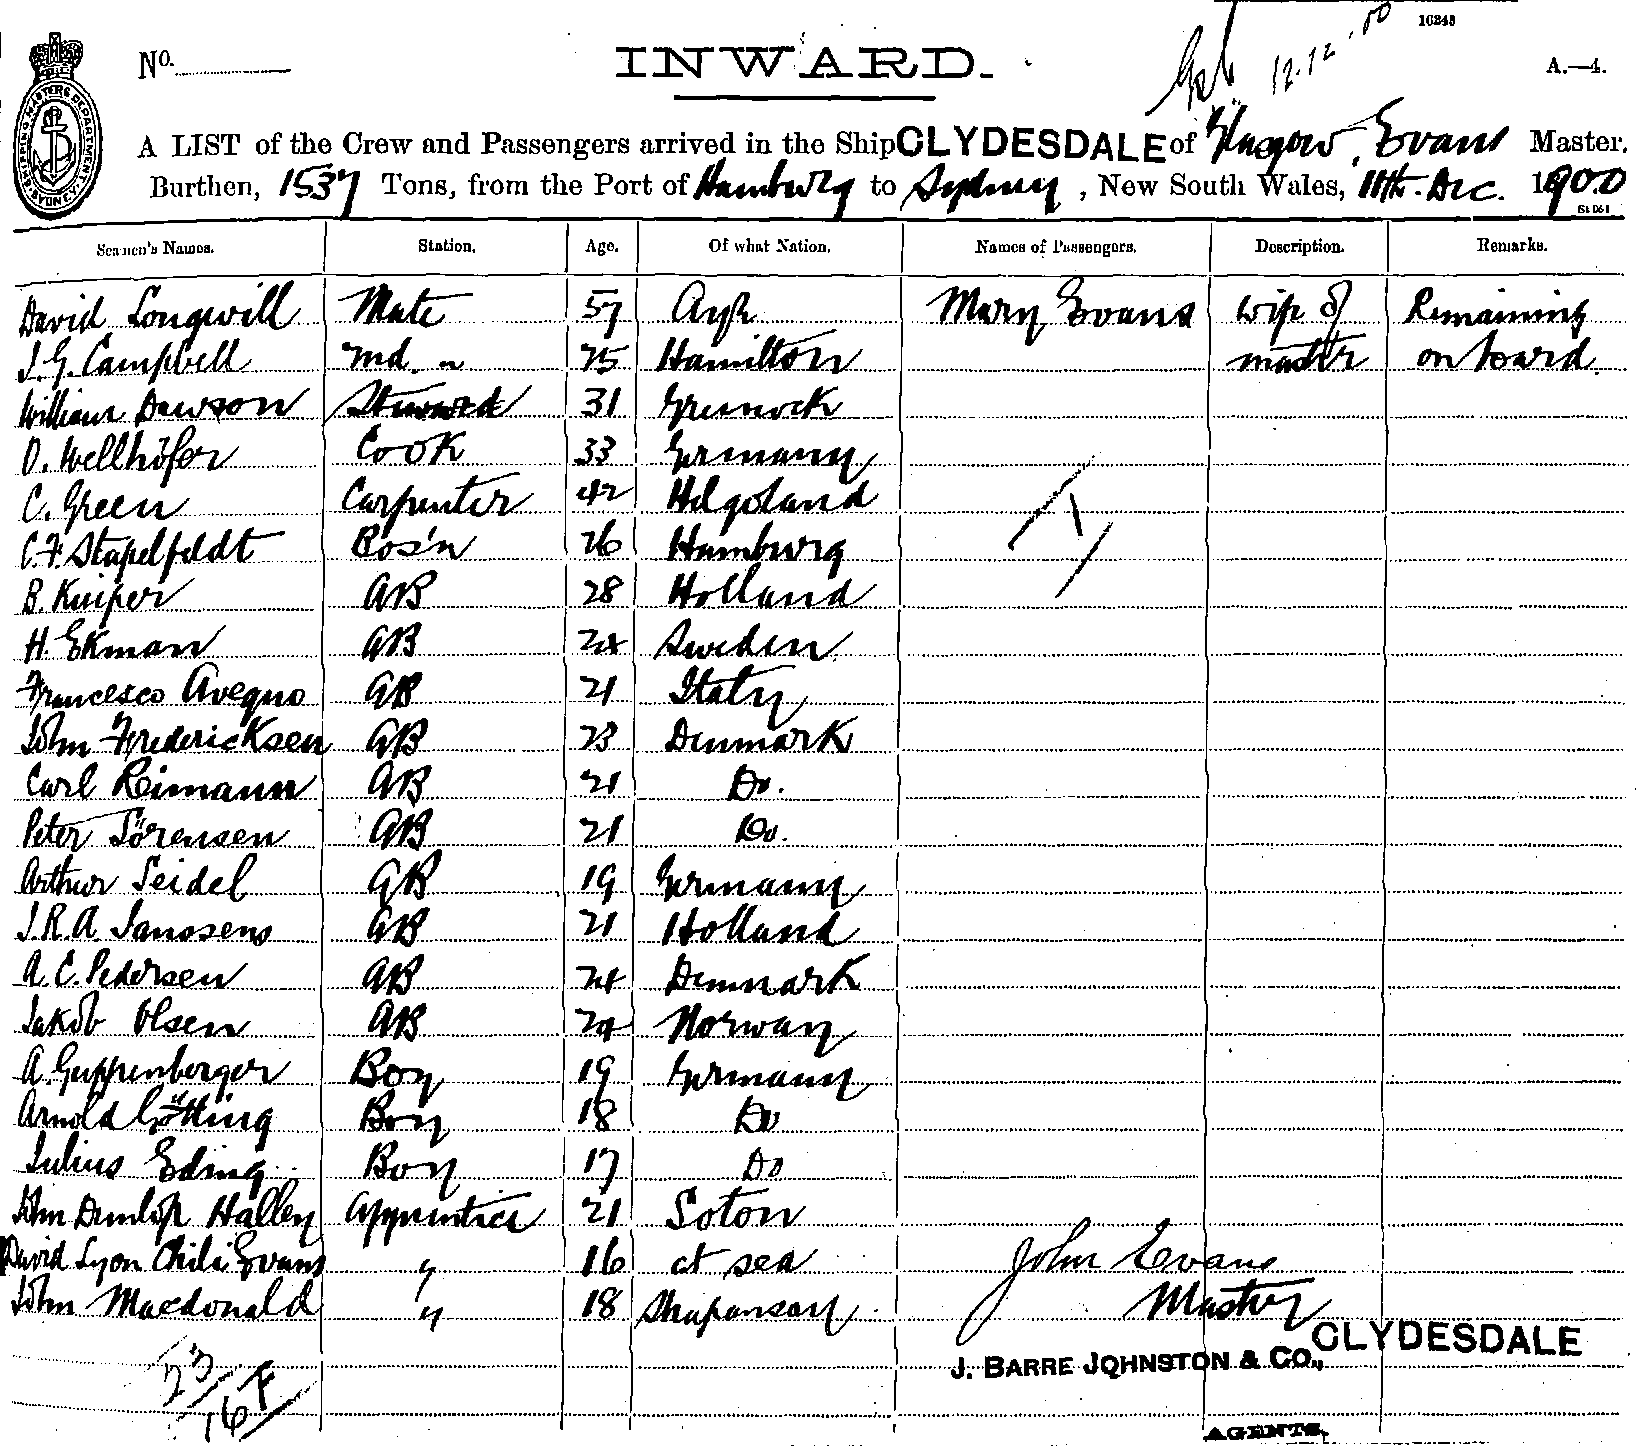 10248
No.
INWARD.
12.12.00
A.—4.
SHIPPING MASTERS DEPARTMENT SYDNEY
A LIST of the Crew and Passengers arrived in the Ship CLYDESDALE of Glasgow, Evans Master,
Burthen, 1537 Tons, from the Port of Hamburg to Sydney, New South Wales, 11th. Dec. 1900
Seamen's Names. Station. Age. Of what Nation. Names of Passengers. Description. Remarks.
David Longwill Mate 57 Ayr Mary Evans wife of Remaining
J. G. Campbell 2nd. " 25 Hamilton master on board
William Dawson Steward 31 Greenock
O. Wellhöfer Cook 33 Germany
C. Green Carpenter 42 Helgoland
C. F. Stapelfeldt Bos'n 26 Hamburg
B. Kuiper AB 28 Holland
H. Ekman AB 24 Sweden
Francesco Avegno AB 21 Italy
John Fredericksen AB 23 Denmark
Carl Reimann AB 21 Do.
Peter Sörensen AB 21 Do.
Arthur Seidel AB 19 Germany
J. R. A. Janssens AB 21 Holland
A. C. Pedersen AB 24 Denmark
Jakob Olsen AB 24 Norway
A. Guppenberger Boy 19 Germany
Arnold Götting Boy 18 Do
Julius Eding Boy 17 Do
John Dunlop Halley Apprentice 21 Soton
David Lyon Chili Evans " 16 at sea
John Macdonald " 18 Shapansay
John Evans
Master
CLYDESDALE
J. BARRE JOHNSTON & CO.,
23
16 F
AGENTS.